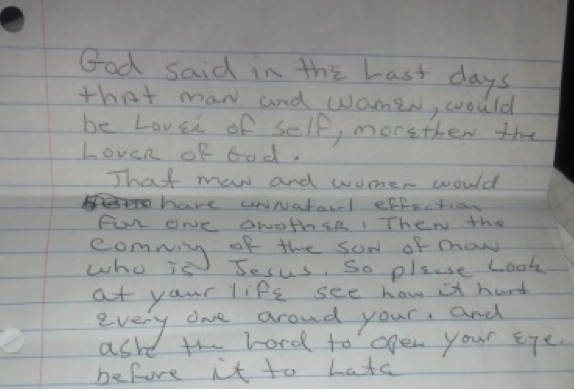 God said in the Last days
that man and women, would
be Lover of self, more then the
Lover of God.
That man and women would
have unnatural effection
for one another. Then the
comming of the son of man
who is Jesus. So please Look
at your life see how it hurt
every one aroud your. and
ask the Lord to open your eye.
before it to Late